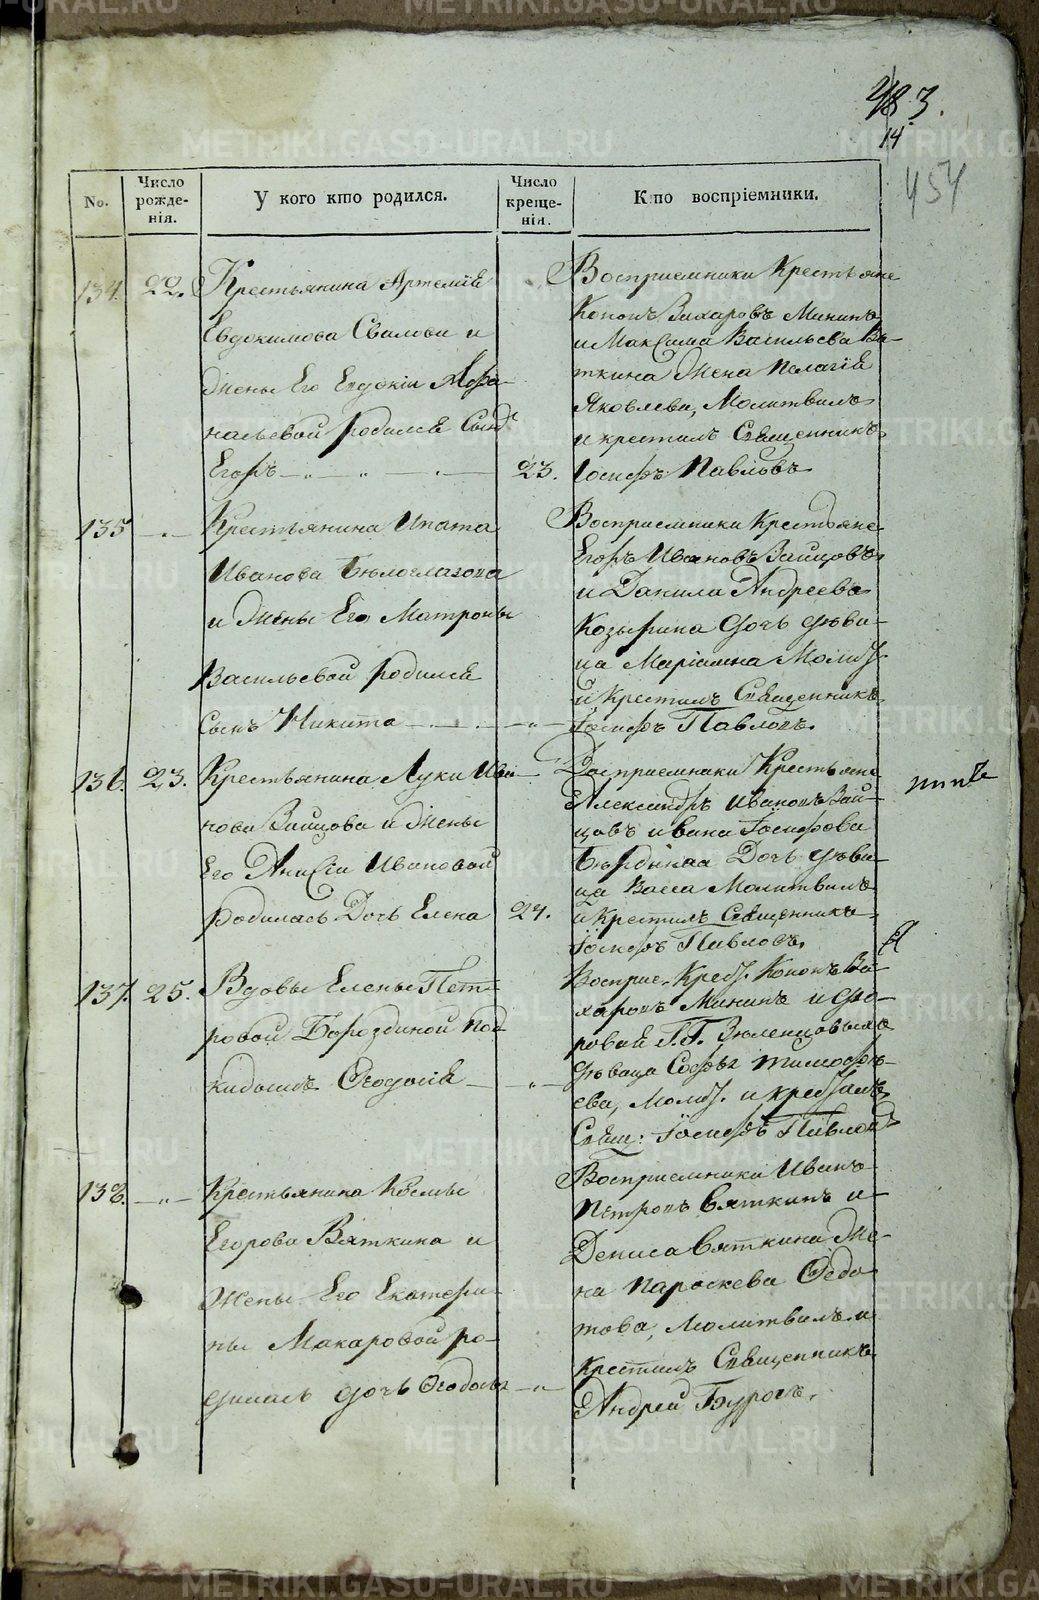 483.
14
454
No.
Число рожденія.
У кого кто родился.
Число крещенія.
Кто воспріемники.
134. 22. Крестьянина Артемія
Евдокимова Свалова и
жены Его Евдокіи Афа-
насьевой родился Сынъ
Егоръ 23.
Восприемники Крестьяне
Кононъ Захаровъ Мининъ
и Максима Васильева Вя-
ткина Жена Пелагія
Яковлева, Молитвилъ
и крестилъ Священникъ
Іосифъ Павловъ
135 Крестьянина Ипата
Иванова Бѣлоглазова
и Жены Его Матроны
Васильевой родился
Сынъ Никита
Восприемники Крестьяне
Егоръ Ивановъ Зайцовъ
и Данила Андреева
Козырина дочь дѣви-
ца Маріамна Молит.
и Крестилъ Священникъ
Іосифъ Павловъ.
136. 23. Крестьянина Луки Ива-
нова Зайцова и Жены
Его Анисіи Ивановой
родилась Дочь Елена 24.
Восприемники Крестьяне
Александръ Ивановъ Зай-
цовъ и Вана Іосифова
Дочь дѣви-
ца Васса Молитвилъ
и Крестилъ Священникъ
Іосифъ Павловъ.
137. 25. Вдовы Елены Пет-
ровой Бороздиной под-
кидышъ Ѳеодосій
Восприе. Крест. Кононъ За-
харовъ Мининъ и дво-
ровой Г.Г. Зѣленцовыхъ
дѣвица Софья Тимофѣ-
ева, Молит. и крестилъ
Свящ: Іосифъ Павловъ
138. Крестьянина Козмы
Егорова Вяткина и
Жены Его Екатери-
ны Макаровой ро-
дилась дочь Ѳеодосья
Восприемники Иванъ
Петровъ Вяткинъ и
Дениса Вяткина Же-
на Параскева Ѳедо-
това, Молитвилъ и
Крестилъ Священникъ
Андрей Буровъ.
METRIKI.GASO-URAL.RU